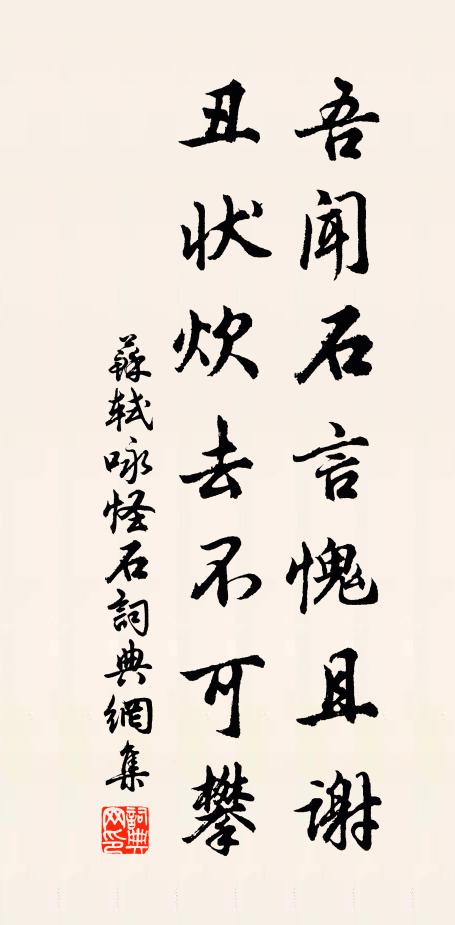 吾闻石言愧且谢
丑状炊去不可攀
蘇軾咏怪石詞典網集
詞典
网印